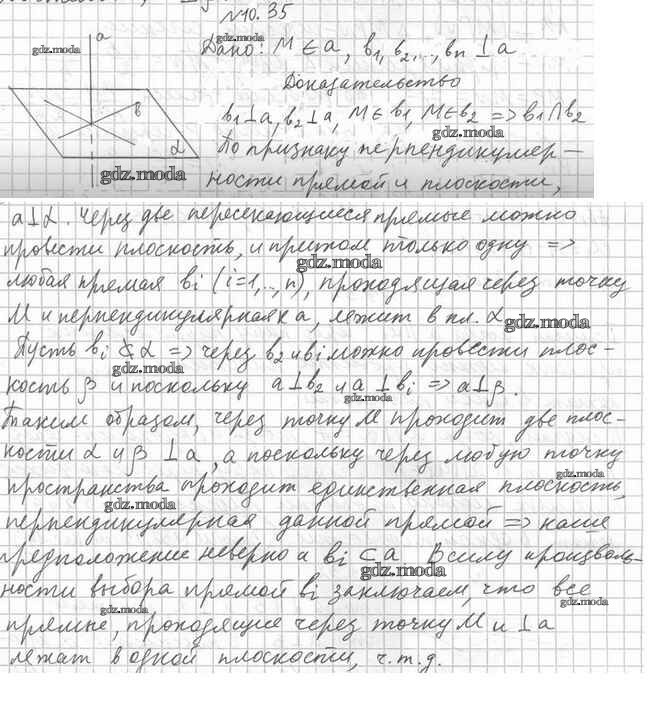 №10.35
a
gdz.moda
gdz.moda
Дано: M ∈ a, b₁, b₂,.., bₙ ⊥ a
Доказательство
b
b₁⊥a, b₂⊥a, M∈b₁, M∈b₂ => b₁∩b₂
gdz.moda
α
По признаку перпендикуляр-
gdz.moda
ности прямой и плоскости,
a⊥α. Через две пересекающиеся прямые можно
провести плоскость, и притом только одну =>
gdz.moda
любая прямая bᵢ (i=1,..,n), проходящая через точку
M и перпендикулярная к a, лежит в пл. α
gdz.moda
Пусть bᵢ ⊄ α => через b₂ и bᵢ можно провести плос-
gdz.moda
кость β и поскольку a⊥b₂ и a⊥bᵢ => a⊥β.
gdz.moda
Таким образом, через точку M проходит две плос-
кости α и β ⊥ a, а поскольку через любую точку
gdz.moda
пространства проходит единственная плоскость,
gdz.moda
перпендикулярная данной прямой => наше
предположение неверно и bᵢ ⊂ a. В силу произволь-
gdz.moda
ности выбора прямой bᵢ заключаем, что все
gdz.moda
gdz.moda
прямые, проходящие через точку M и ⊥a
лежат в одной плоскости, ч.т.д.